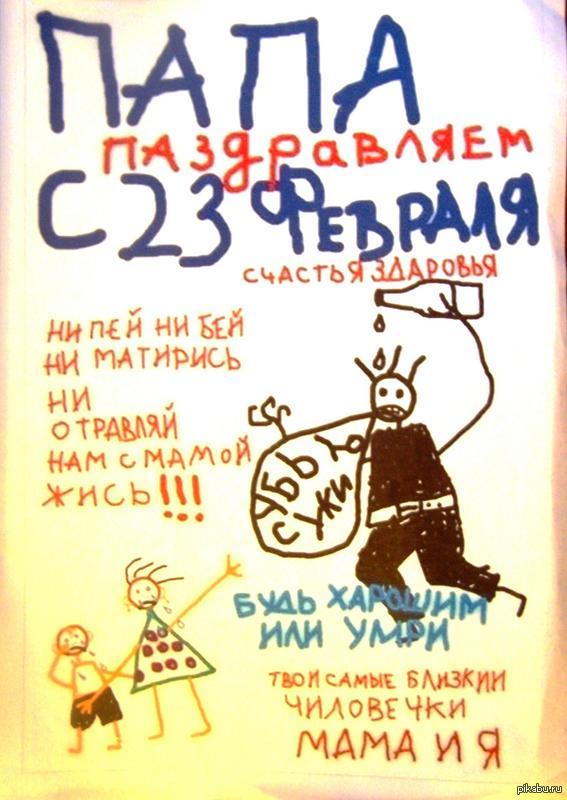 ПАПА
ПАЗДРАВЛЯЕМ
С 23 ФЕВРАЛЯ
СЧАСТЬЯ ЗДАРОВЬЯ
НИ ПЕЙ НИ БЕЙ
НИ МАТИРИСЬ
НИ
ОТРАВЛЯЙ
НАМ С МАМОЙ
ЖИСЬ!!!
УБЬЮ
СУКИ
БУДЬ ХАРОШИМ
ИЛИ УМРИ
ТВОИ САМЫЕ БЛИЗКИИ
ЧИЛОВЕЧКИ
МАМА И Я
pikabu.ru